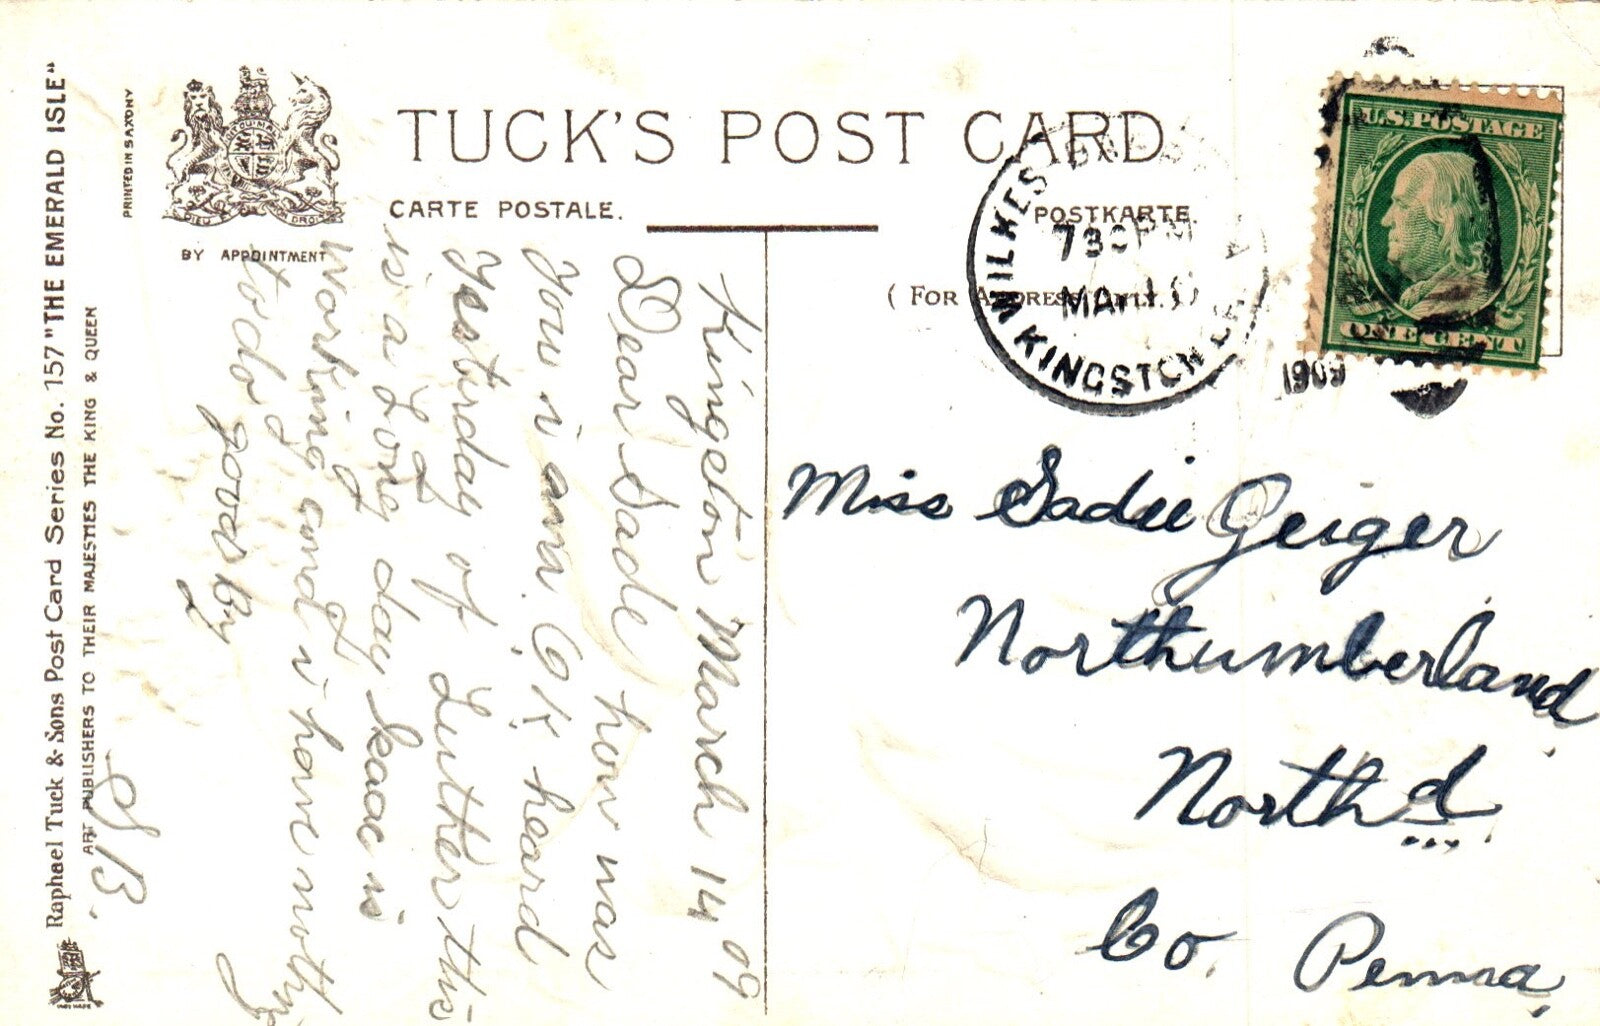 TUCK'S POST CARD
CARTE POSTALE.
POSTKARTE.
(FOR ADDRESS ONLY.)
BY APPOINTMENT
PRINTED IN SAXONY
Raphael Tuck & Sons Post Card Series No. 157 "THE EMERALD ISLE"
ART PUBLISHERS TO THEIR MAJESTIES THE KING & QUEEN
WILKES BARRE
KINGSTON
730 PM
MAR
1909
U.S. POSTAGE
ONE CENT
Kingston March 14, 09
Dear Sade how was
You i am O.K. heard
Yesturday of Luther this
is a Long day Isaac is
Working and i have nothing
to do
S B.
Miss Sadie Geiger
Northumberland
North'd
Co. Penna,